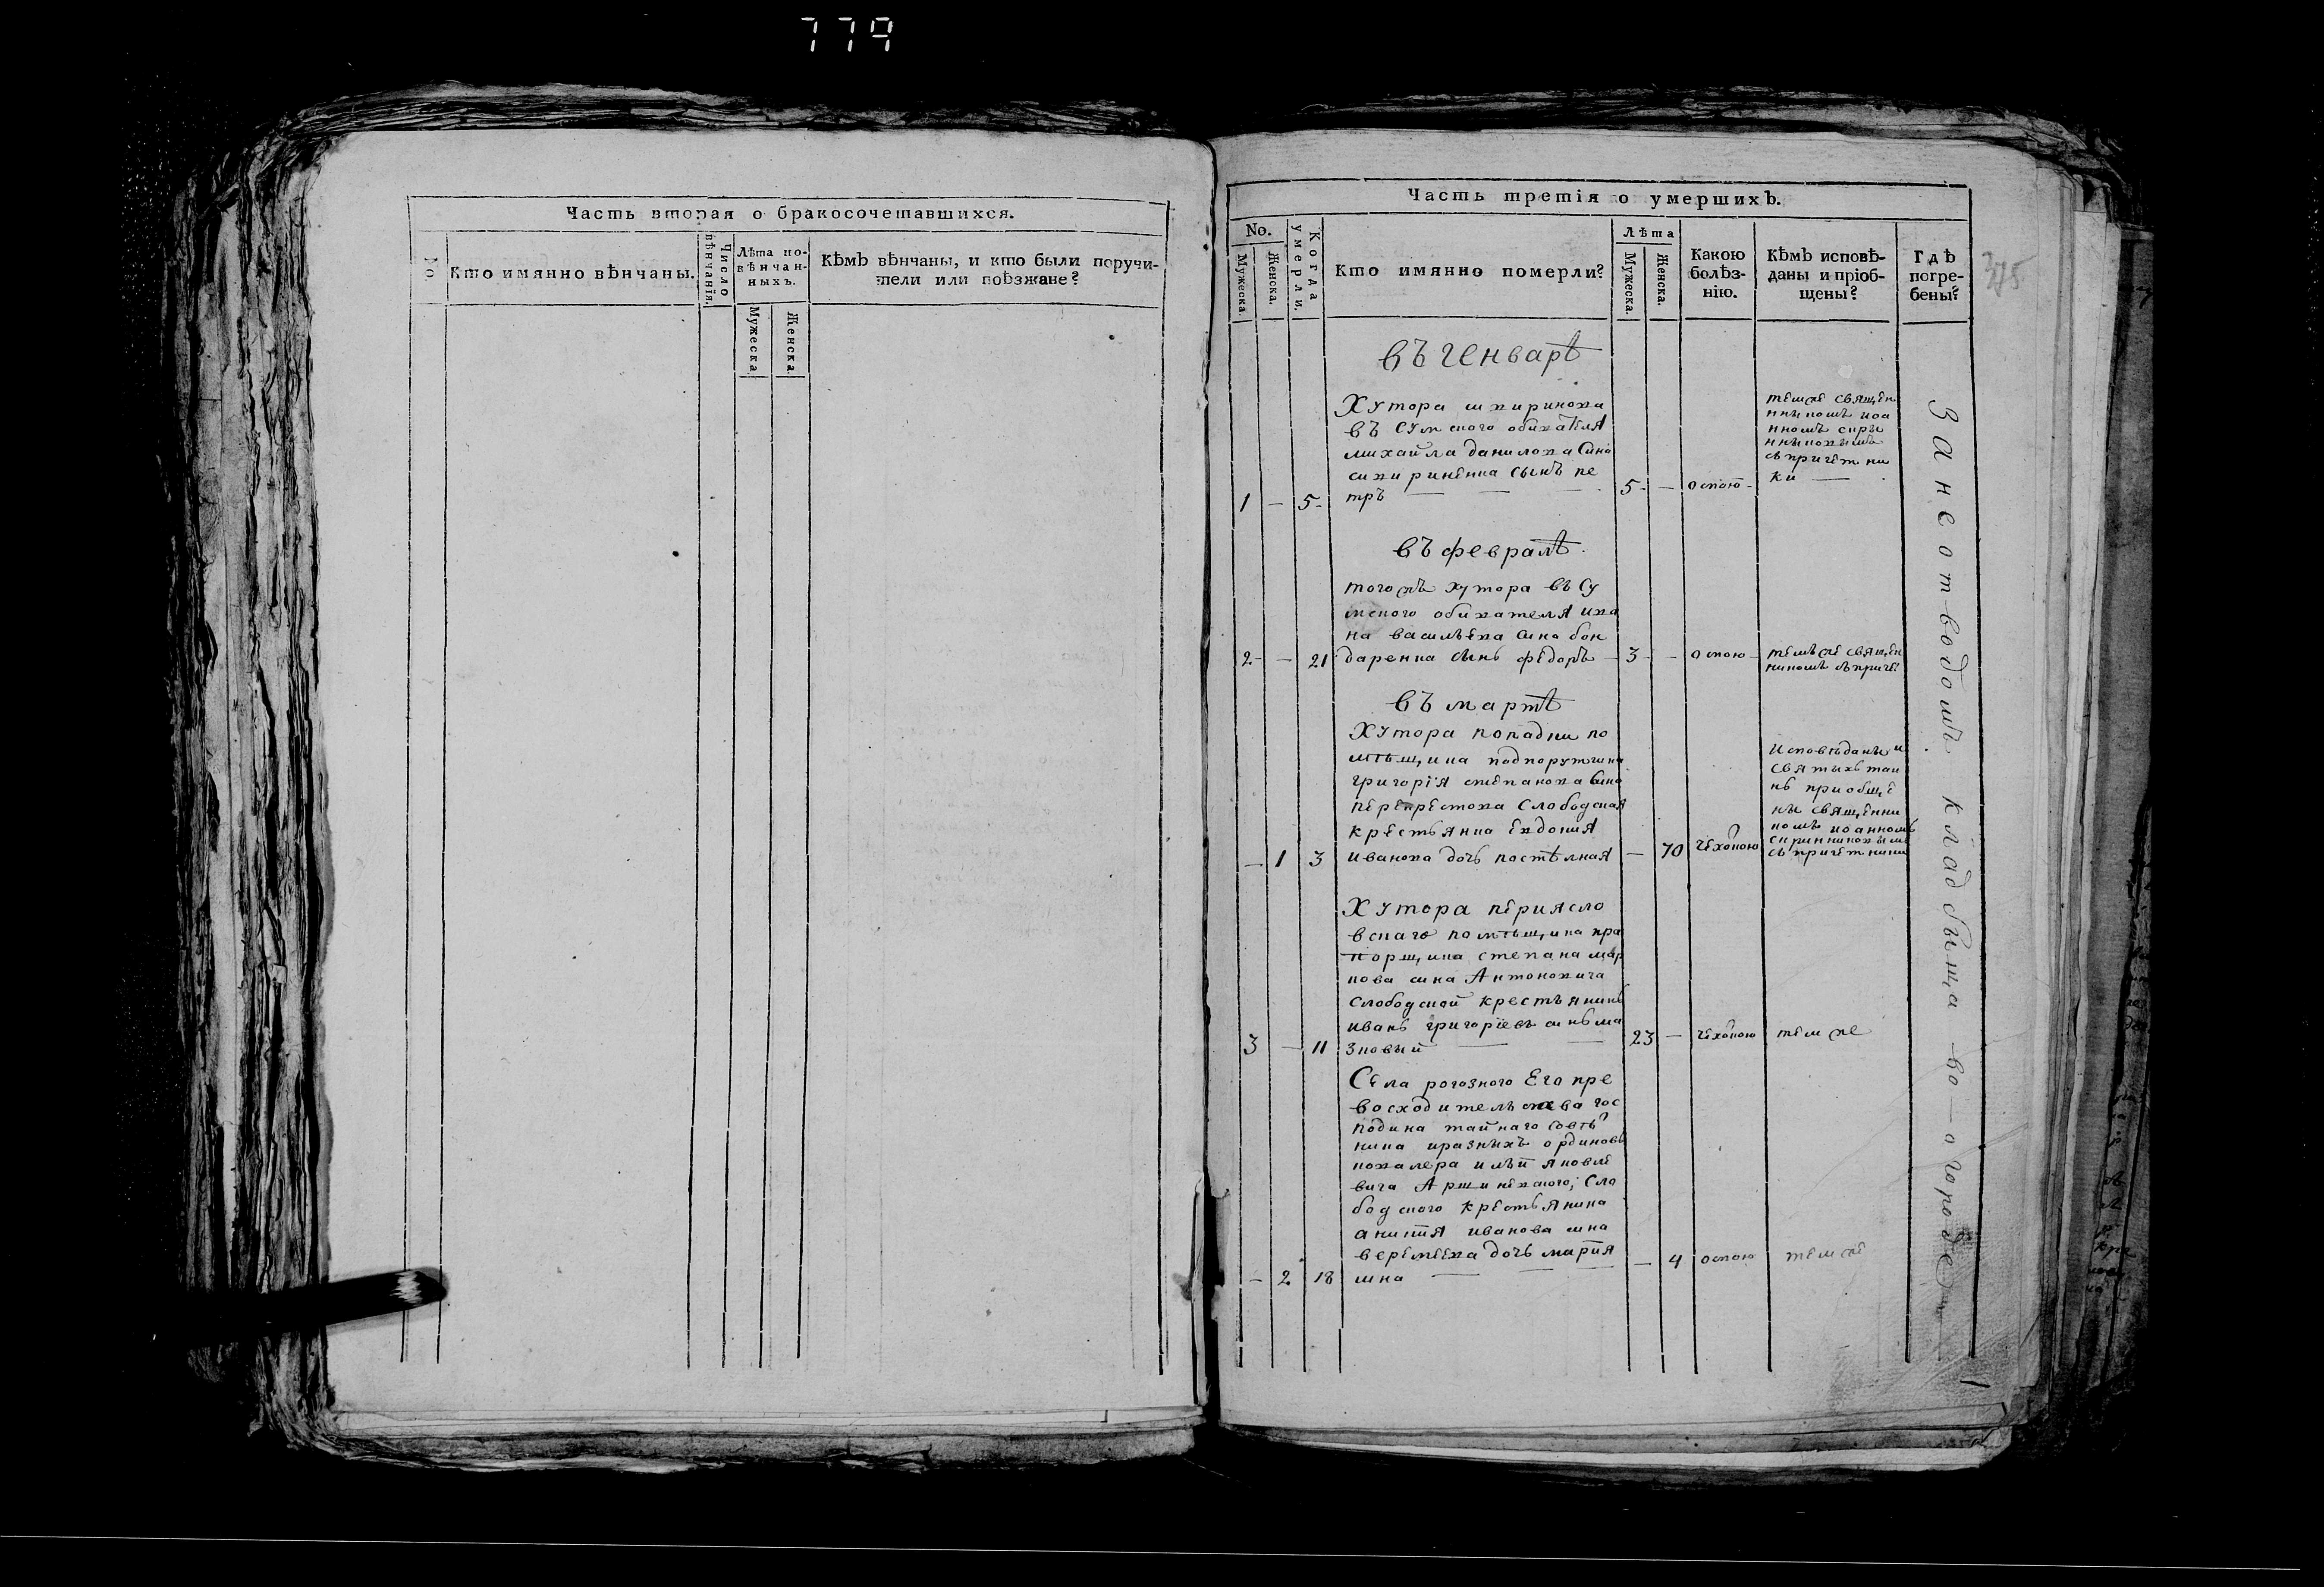 779
Часть вторая о бракосочетавшихся.
No
Кто имянно вѣнчаны.
Число вѣнчанїя.
Лѣта но-
вѣнчан-
ныхъ.
Мужеска
Женска
Кѣмъ вѣнчаны, и кто были поручи-
тели или поѣзжане?
Часть третїя о умершихъ.
No.
Мужеска.
Женска.
Когда умерли.
Кто имянно померли?
Лѣта
Мужеска.
Женска.
Какою
болѣз-
нію.
Кѣмъ исповѣ-
даны и прїоб-
щены?
Гдѣ
погре-
бены?
375
въ генварѣ
Хутора
въ сумского обивателя
михайла данилова сина
сынъ пе
тръ
1 — 5
5 — оспою
темже священ
никомъ иоа
нномъ
съ причетни
ки
въ февралѣ
тогожъ хутора въ Су
мского обивателя ива
на василъева сина бон
даренка сынъ федоръ
2 — 21
3 — оспою
темъже священ
никомъ съ приче
въ мартѣ
Хутора попадки по
мѣщика подпорутчика
григорїя степанова сина
перекрестова Слободская
крестьянка евдокия
иванова дочь постѣлная
— 1 3
— 70
исповѣданы и
святыхъ таи
нъ приобще
ны священни
комъ иоанномъ
съ причетники
Хутора периясло
вскаго помѣщика пра
порщика степана мар
кова сина Антоновича
слободской крестъянинъ
иванъ григорїевъ синъ ма
зновый
3 — 11
23 —
тем же
Села рогозного Его пре
восходителъства гос
подина тайнаго совѣ
ника иразныхъ ординовъ
кавалера илѣи яковле
вича Аршиневского, Сло
бодского крестьянина
иванова сина
веремеева дочь мария
мна
— 2 18
— 4 оспою
тем же
За неотводомъ кладбища во огороде
1